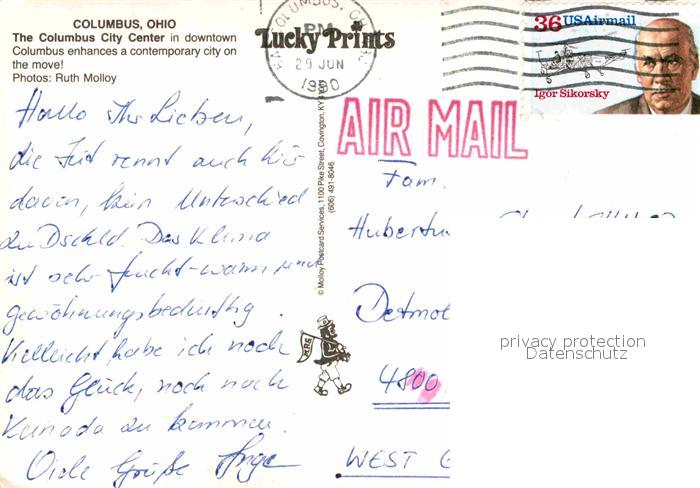 COLUMBUS, OHIO
The Columbus City Center in downtown
Columbus enhances a contemporary city on
the move!
Photos: Ruth Molloy
Hallo Ihr Lieben,
die Zeit rennt auch hier
davon, kein Unterschied
zu Dschld. Das Klima
ist sehr feucht-warm und
gewöhnungsbedürftig.
Vielleicht habe ich noch
das Glück, noch nach
Kanada zu kommen.
Viele Grüße Inge
Lucky Prints
COLUMBUS, OH
PM
29 JUN
1990
36 USAirmail
Igor Sikorsky
AIR MAIL
© Molloy Postcard Services, 1100 Pike Street, Covington, KY
(606) 491-8046
Fam.
Hubertu
Detmol
4800
WEST G
privacy protection
Datenschutz